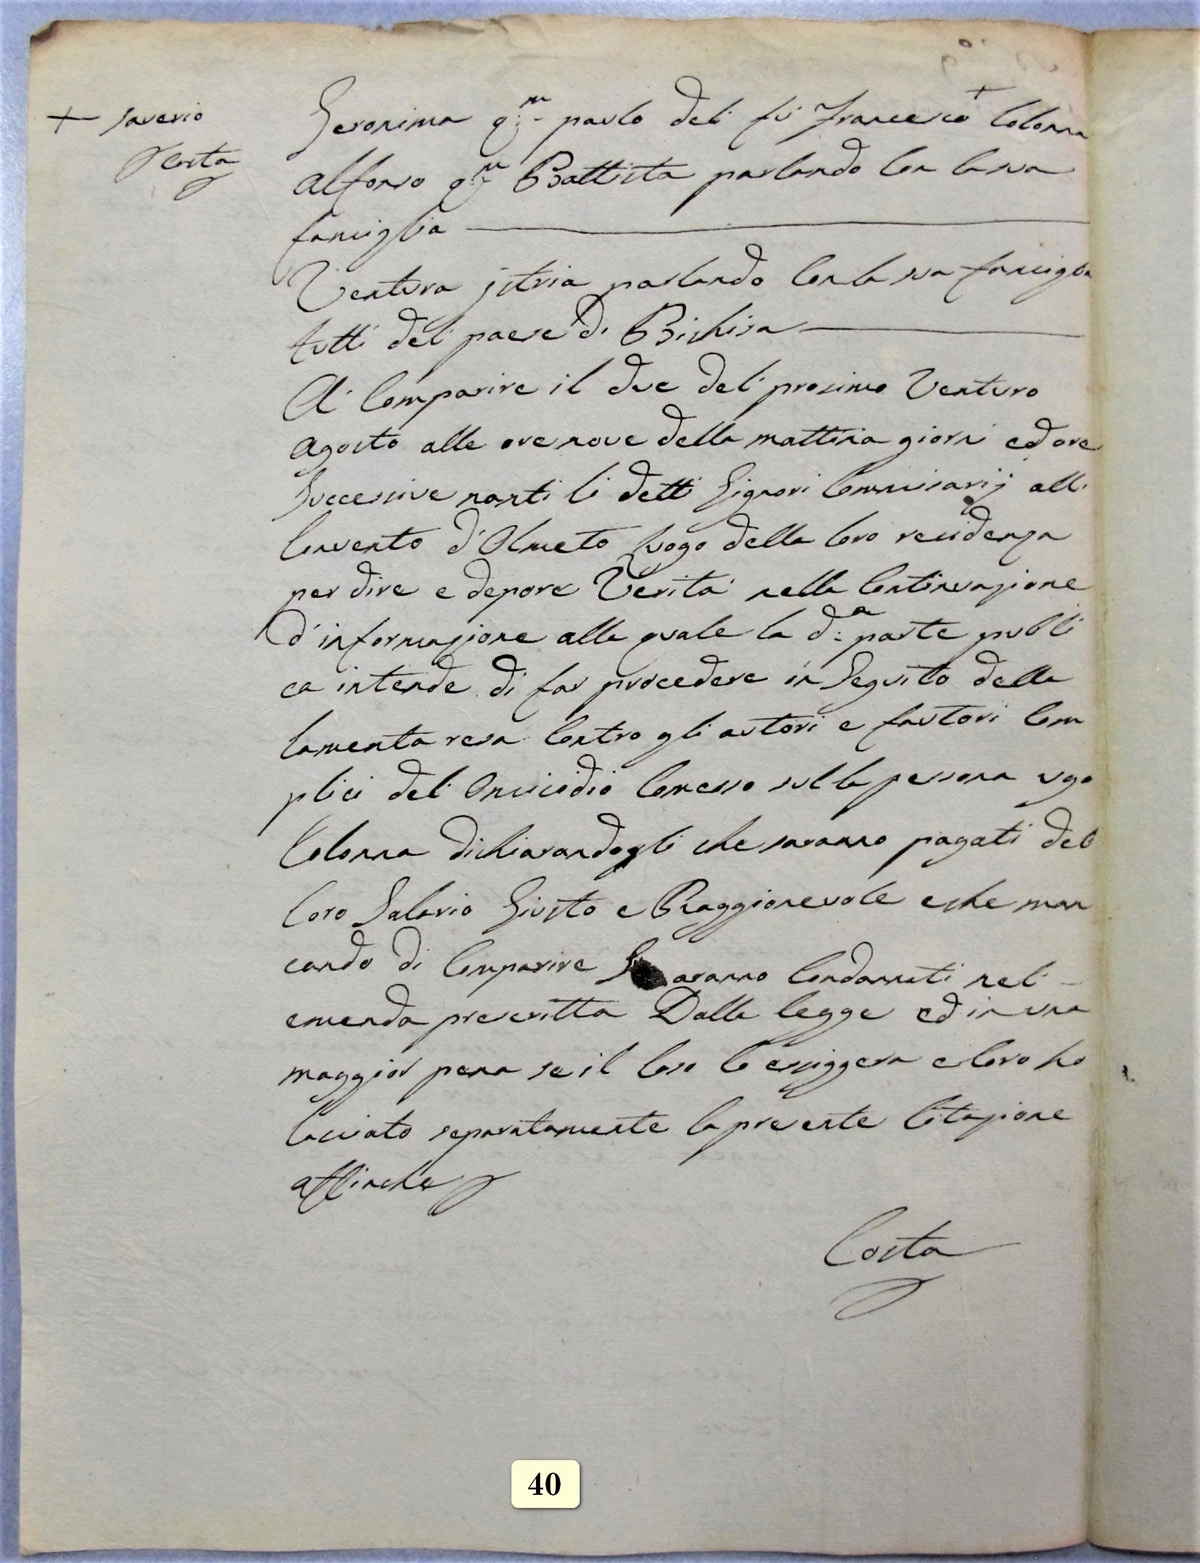 + Saverio
Costa
Geronima q:m paulo del fù Francesco + Colonna
Alfonso q:m Battista parlando Con la sua
famiglia
Ventura istria parlando Con la sua famiglia
tutti del paese di Bichisa
A' Comparire il due del prosimo Venturo
Agosto alle ore nove della mattina giorni ed ore
Successive nanti li detti Signori Commissarij all'
Convento d'Olmeto luogo della loro residenza
per dire e depore Verità nella Continuazione
d'informazione alla quale la d:a parte publi
ca intende di far procedere in Seguito della
lamenta resa Contro gli autori e fautori Com
plici del Omicidio Comesso sulla persona ugo
Colonna dichiarandogli che saranno pagati del
loro Salario Giusto e Raggionevole e che man
cando di Comparire Saranno Condannati nel'
emenda prescritta Dalla legge ed in una
maggior pena se il Caso lo essiggera e loro ho
lasciato separatamente la presente Citazione
affinche
Costa
40